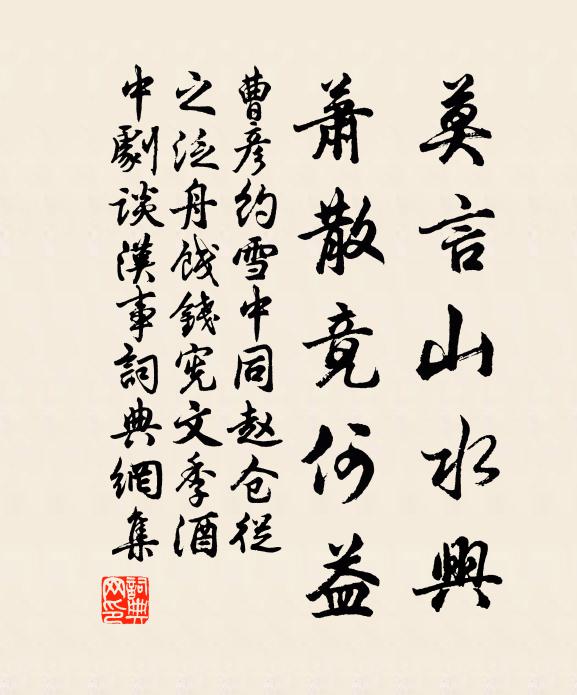 莫言山水興
蕭散竟何益
曹彦約雪中同赵仓從
之泛舟餞錢宪文季酒
中劇談漢事詞典網集
詞典網印